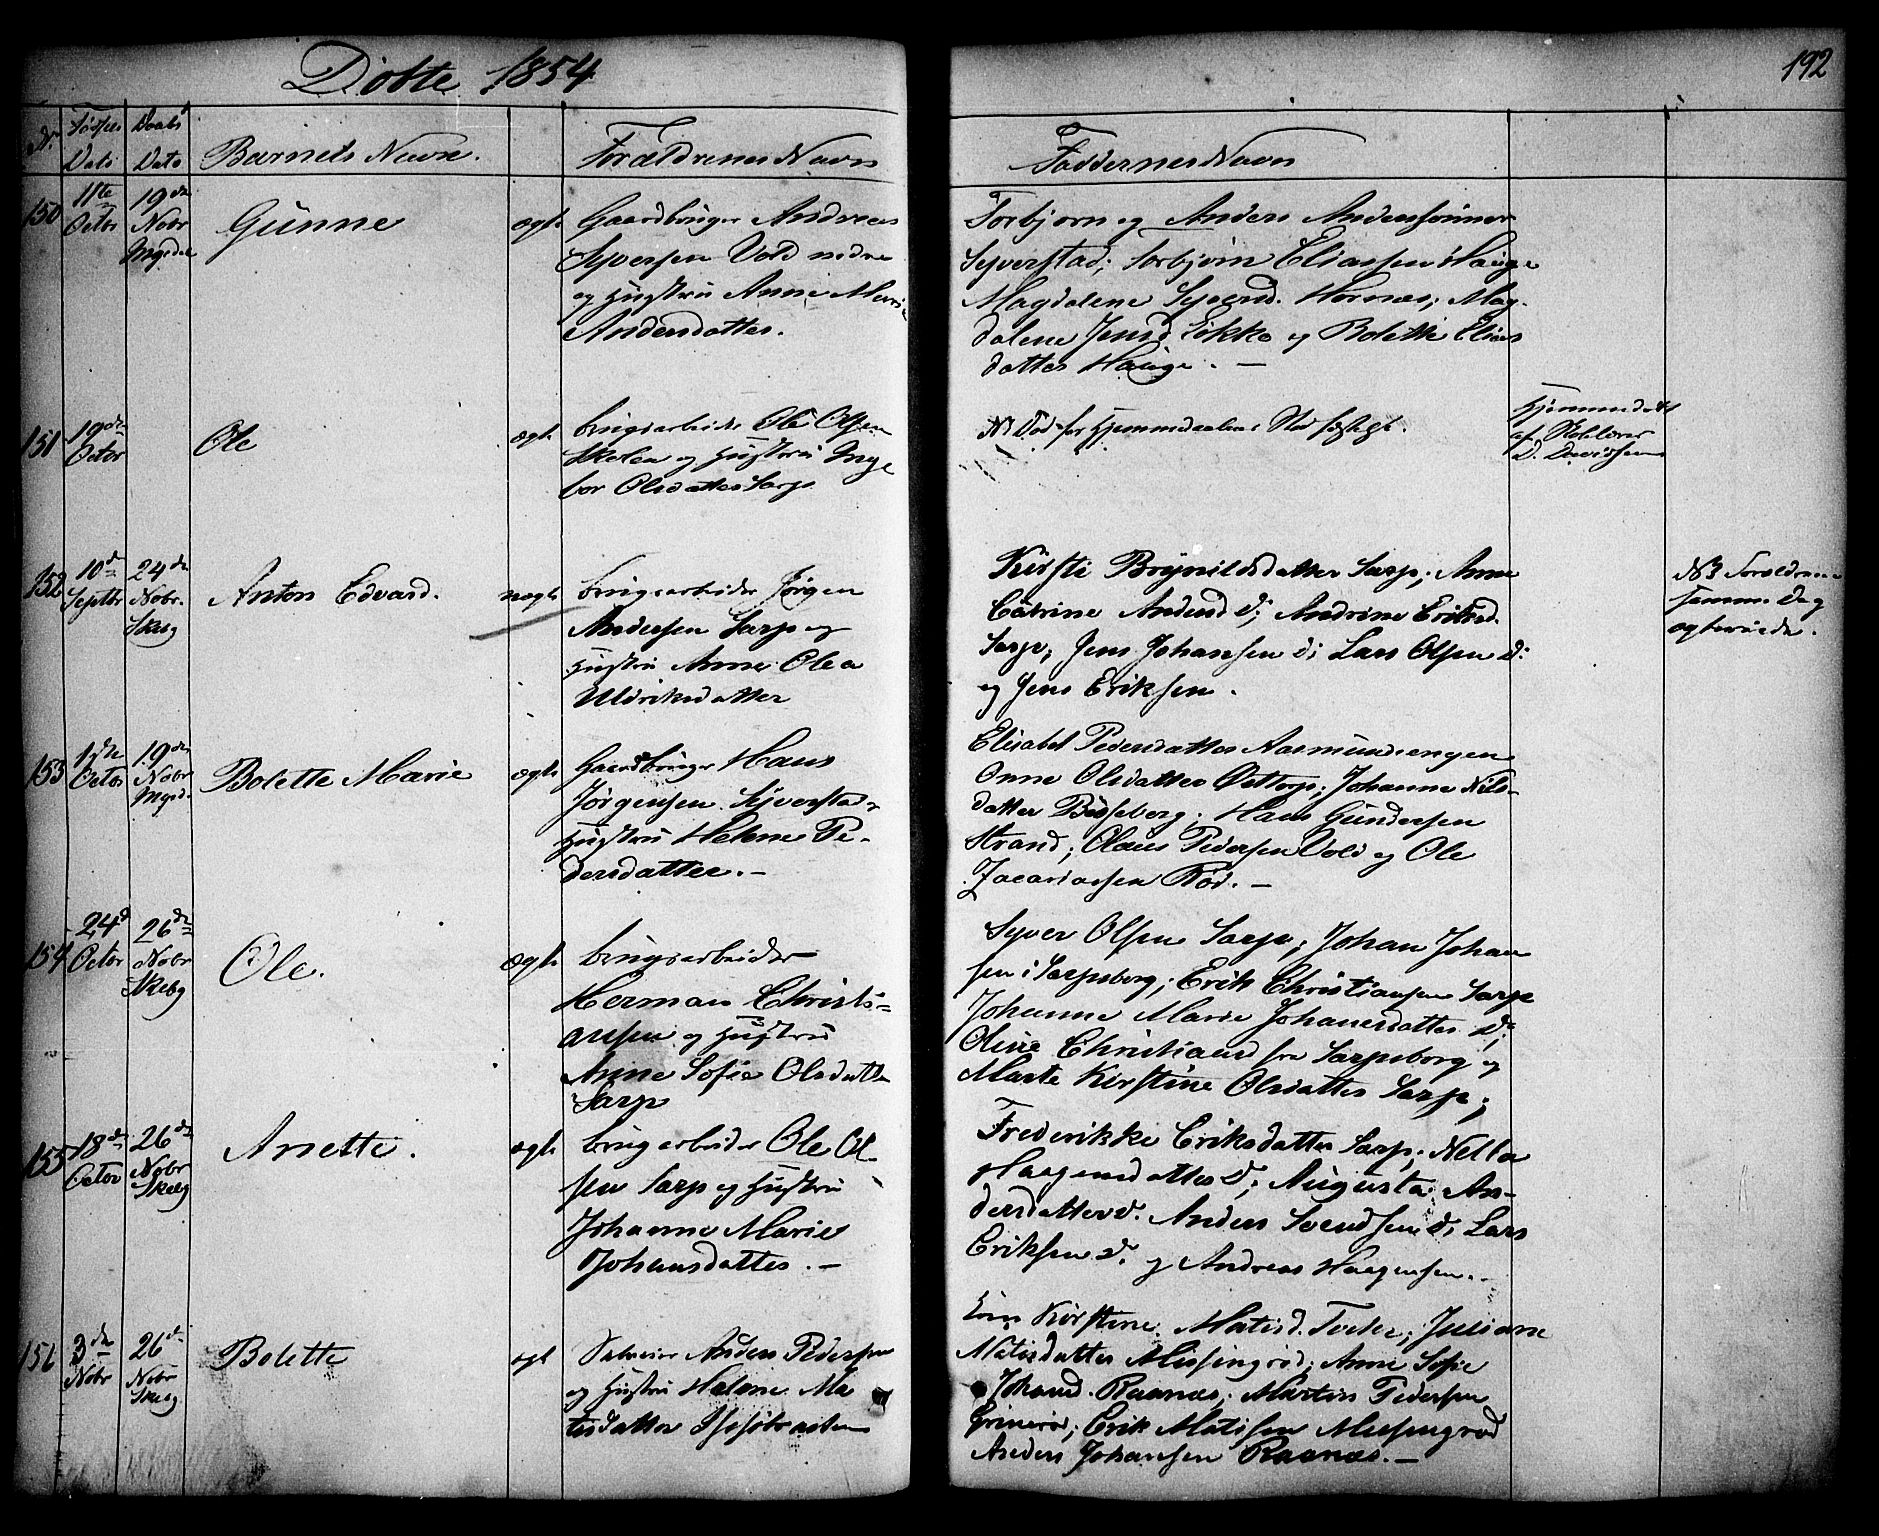 Döbte 1854
192
Nr.
Fødsels Dato
Daabs Dato
Barnets Navn.
Forældrenes Navn
Faddernes Navn
150
11te Octbr
19de Novbr
Gunne
ægte
Gaardbruger Andreas
Syversen Vold nedre
og Hustru Anne Marie
Andersdatter.
Torbjørn og Anders Anderssønner
Syverstad; Torbjørn Eliassen Hauge
Magdalene Syversd. Hornæs; Mag-
dalene Jensd. Eikke og Bolette Elias
datter Hauge. —
151
19de Octbr
Ole
ægte
brugsarbeider Ole Olsen
Skolen og Hustru Inge
bor Olsdatter Sarp
Hjemmedøbt
af
D. Davidsen
152
10de Septbr
24de Nobr.
Skebg
Anton Edvard.
uægte
brugsarbeider Jørgen
Andersen Sarp og
Hustru Anne Olea
Uldriksdatter
Kirsti Brynildsdatter Sarp; Anne
Catrine Andersd. d; Andrine Eriksd.
Sarp; Jens Johansen d; Lars Olsen d:
og Jens Eriksen.
NB Foreldrene
samme Dag
ogteviede.
153
Octbr
19de Nobr
Mgsd.
Bolette Marie
ægte
Gaardbruger Hans
Jørgensen Syverstad
Hustru Helene Pe-
dersdatter. —
Elisabet Pedersdatter Aasmundsengen
Anne Olsdatter Østtorp; Johanne Nils-
datter Bisseberg; Hans Gundersen
Strand; Olaus Pedersen Vold og Ole
Zacariassen Rød. —
154
24d Octbr
26de Nobr
Skebg
Ole.
ægte
brugsarbeider
Herman Christi-
ansen og Hustru
Anne Sofie Olsdatter
Sarp
Syver Olsen Sarp; Johan Johan
sen i Sarpsborg; Erik Christiansen Sarp
Johanne Marie Johanesdatter d;
Oline Christiansd fra Sarpsborg og
Marte Kirstine Olsdatter Sarp;
155
18de Octbr
26de Nobr
Skebg
Anette.
ægte
brugsarbeider Ole Ol-
sen Sarp og Hustru
Johanne Marie
Johansdatter. —
Frederikke Eriksdatter Sarp; Nella
Haagensdatter d; Augusta An-
dersdatter d. Anders Svendsen d; Lars
Eriksen d. og Andreas Haagensen.
156
3de Nobr
26de Nobr
Skebg
Bolette
ægt
Anders Pedersen
og Hustru Helene Ma
tisdatter
Kirstine Matisd. Torke; Juliane
Matisdatter Missingrød; Anne Sofie
Johansd. Raanæs; Martin Pedersen
Grinerød; Erik Matisen Missingrød
Anders Johansen Raanæs. —